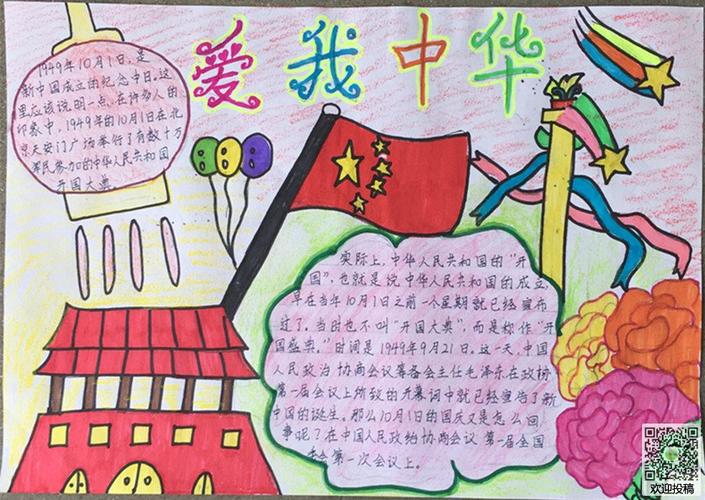 爱我中华
1949年10月1日,是
新中国成立的纪念中日。这
里应该说明一点,在许多人的
印象中,1949年的10月1日在北
京天安门广场举行了有数十万
军民参加的中华人民共和国
开国大典。
实际上,中华人民共和国的“开
国”,也就是说中华人民共和国的成立,
早在当年10月1日之前一个星期就已经宣布
过了。当时也不叫“开国大典”,而是称作“开
国盛典。”时间是1949年9月21日。这一天,中国
人民政治协商会议筹备会主任毛泽东在政协
第一届会议上所致的开幕词中就已经宣告了新
中国的诞生。那么10月1日的国庆又是怎么回
事呢?在中国人民政协商会议第一届全国
委会第一次会议上。
欢迎投稿